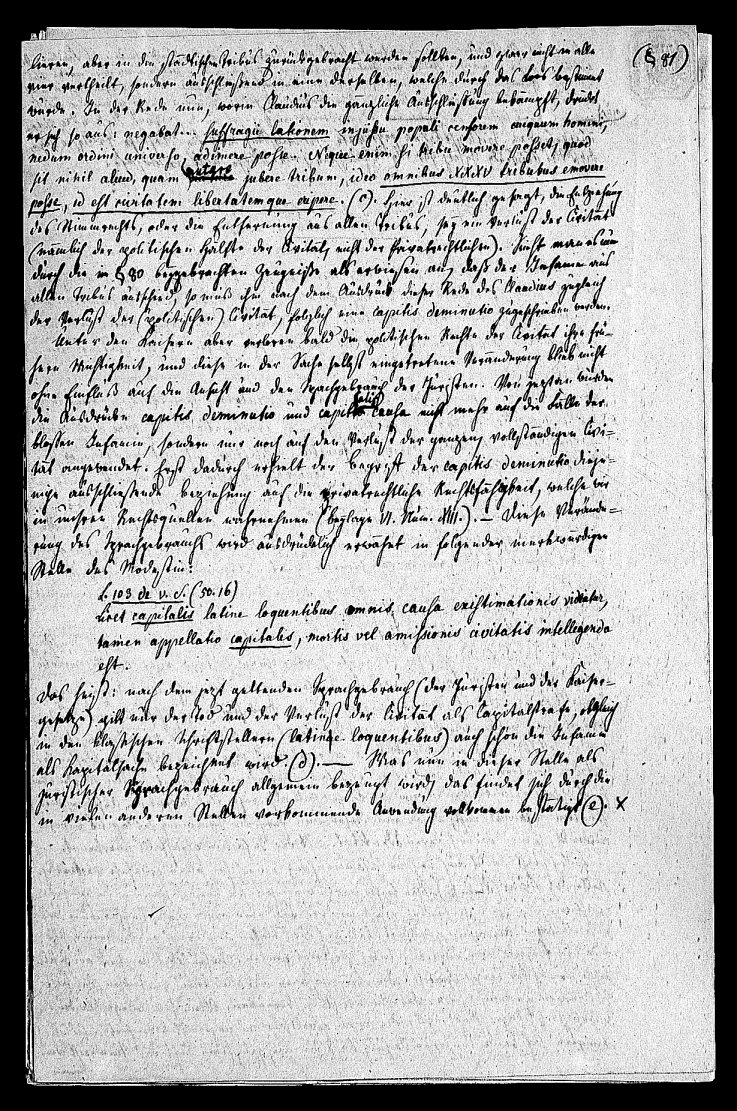 (§ 81)
lieren, aber in die städtischen Tribus zurückgebracht werden sollten, und zwar nicht in alle
vier vertheilt, sondern ausschließend in eine derselben, welche durch das Loos bestimmt
würde. In der Rede nun, worin Claudius die gänzliche Ausschließung bekämpft, drückt
er sich so aus: negabat .. suffragii lationem injussu populi censorem cuiquam homini,
nedum ordini universo, adimere posse. Neque enim si tribu movere posset, quod
sit nihil aliud, quam mutare jubere tribum, ideo omnibus XXXV tribubus emovere
posse, id est civitatem libertatemque eripere. (c). Hier ist deutlich gesagt, die Entziehung
des Stimmrechts, oder die Entfernung aus allen Tribus, sey ein Verlust der Civität
(nämlich der politischen Hälfte der Civität, nicht der privatrechtlichen). Sieht man es nun
durch die in § 80 beygebrachten Zeugnisse als erwiesen an, daß der Infame aus
allen Tribus ausschied, so muß ihm nach dem Ausdruck dieser Rede des Claudius zugleich
der Verlust der (politischen) Civität, folglich eine capitis deminutio zugeschrieben werden.
Unter den Kaisern aber verloren bald die politischen Rechte der Civität ihre frü-
here Wichtigkeit, und diese in der Sache selbst eingetretene Veränderung blieb nicht
ohne Einfluß auf die Ansicht und den Sprachgebrauch der Juristen. Von jetzt an wurden
die Ausdrücke capitis deminutio und capitalis causa nicht mehr auf die Fälle der
bloßen Infamie, sondern nur noch auf den Verlust der ganzen, vollständigen Civi-
tät angewendet. Erst dadurch erhielt der Begriff der capitis deminutio dieje-
nige ausschließende Beziehung auf die privatrechtliche Rechtsfähigkeit, welche wir
in unsren Rechtsquellen wahrnehmen (Beylage VI. Num. XIII.). — Diese Verände-
rung des Sprachgebrauchs wird ausdrücklich erwähnt in folgender merkwürdigen
Stelle des Modestin:
L. 103 de v. s. (50. 16)
Licet capitalis latine loquentibus omnis causa existimationis videatur,
tamen appellatio capitalis, mortis vel amissionis civitatis intelligenda
est.
Das heißt: nach dem jetzt geltenden Sprachgebrauch (der Juristen und der Kaiser-
gesetze) gilt nur der Tod und der Verlust der Civität als Capitalstrafe, obgleich
in den klassischen Schriftstellern (latine loquentibus) auch schon die Infamie
als Kapitalsache bezeichnet wird (d). — Was nun in dieser Stelle als
juristischer Sprachgebrauch allgemein bezeugt wird, das findet sich durch die
in vielen anderen Stellen vorkommende Anwendung vollkommen bestätigt (e). X